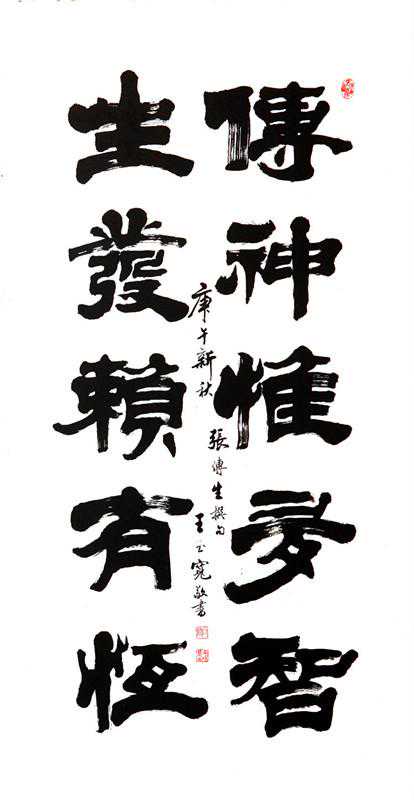 傳神惟多智
生發賴有恒
庚午新秋
張傳生撰句
王玉寬敬書